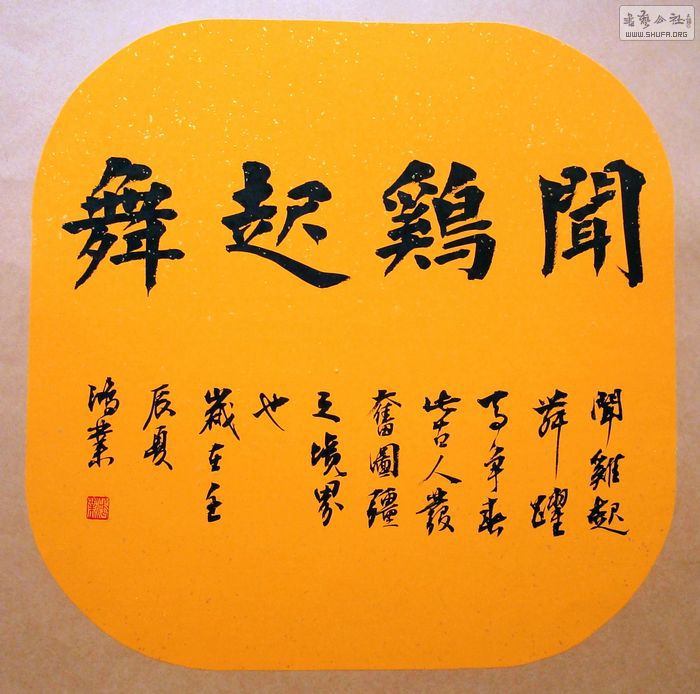 聞鷄起舞
聞雞起
舞躍
馬爭春
此古人發
奮圖疆
之境界
也
歲在壬
辰夏
鴻業
書藝公社
WWW.SHUFA.ORG